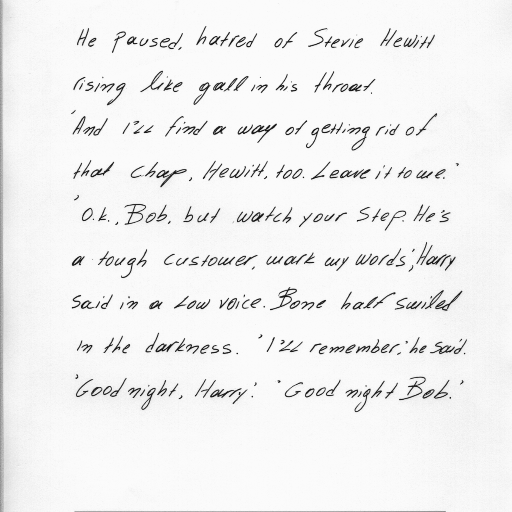 He paused, hatred of Stevie Hewitt
rising like gall in his throat.
'And I'll find a way of getting rid of
that chap, Hewitt, too. Leave it to me.'
'O.k., Bob, but watch your step. He's
a tough customer, mark my words', Harry
said in a low voice. Bone half smiled
in the darkness. 'I'll remember,' he said.
'Good night, Harry'. 'Good night Bob.'